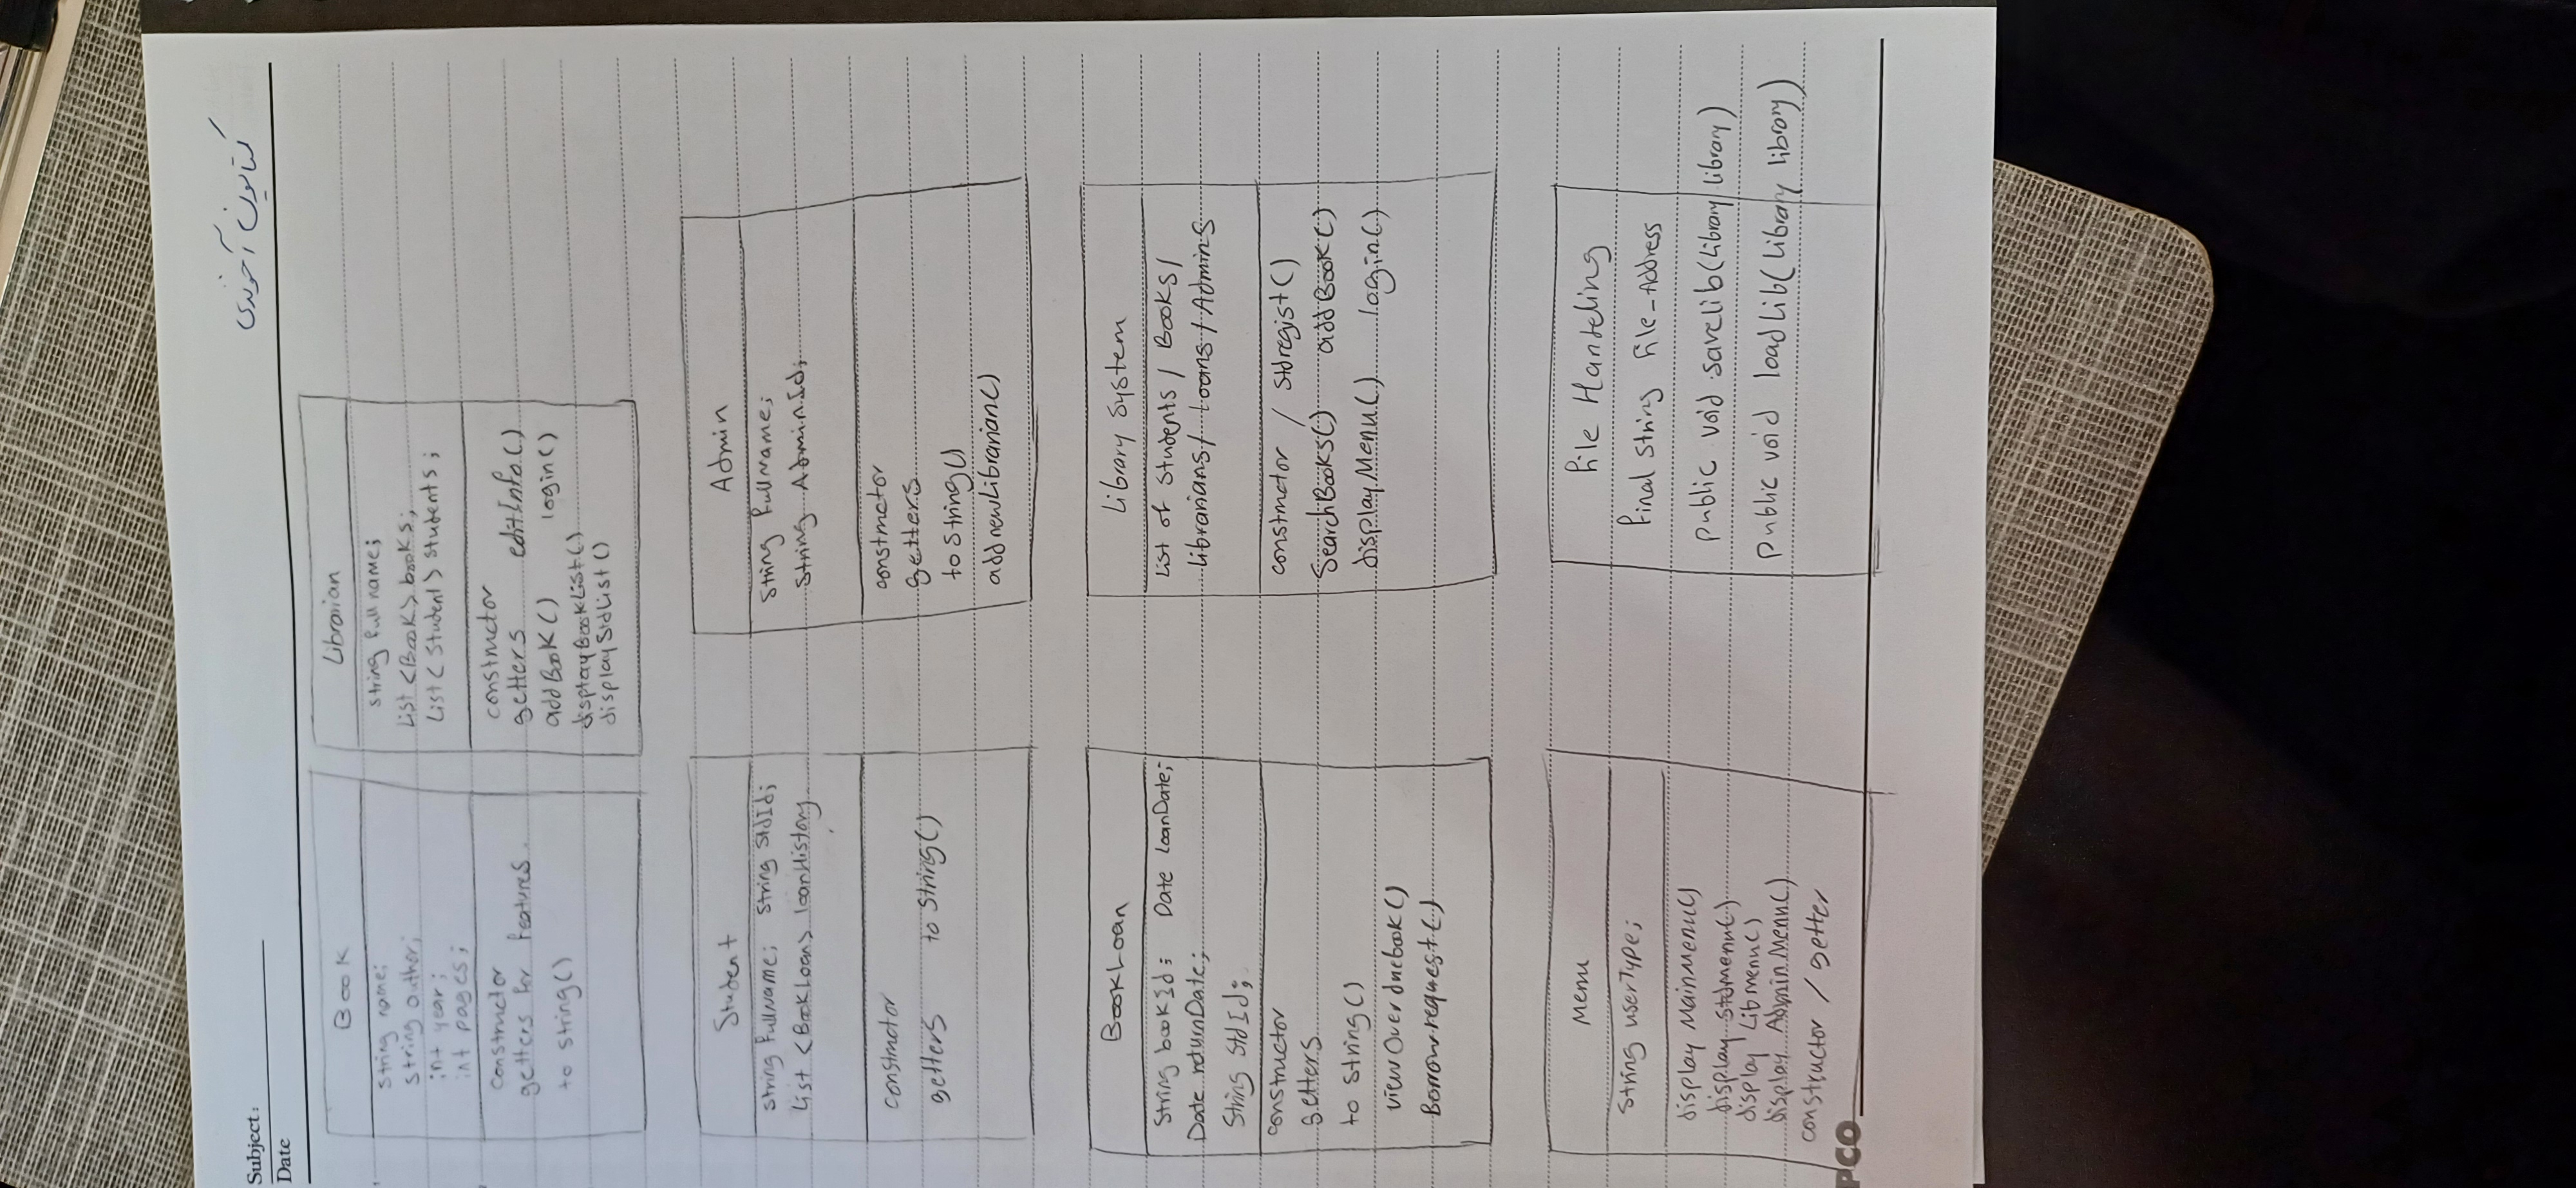 Subject:
Date
کتایون آخوندی
Book
String name;
String author;
int year;
int pages;
constructor
getters for features
to string()
Librarian
String fullname;
List <Book> books;
List < Student> students;
constructor
getters editInfo()
addBook() login()
displayBookList()
displayStdList()
Student
String fullName; String StdId;
List <BookLoan> loanHistory
constructor
getters to String()
Admin
String fullName;
String AdminId;
constructor
getters
to String()
addnewLibrarian()
BookLoan
String bookId; Date loanDate;
Date returnDate;
String StdId;
constructor
getters
to String()
viewOverduebook()
Borrowrequest()
Library System
List of Students / Books/
librarians/ Loans / Admins
constructor / Stdregist()
SearchBooks() addBook()
display Menu() login()
Menu
String userType;
display MainMenu()
display Stdmenu()
display Libmenu()
display AdminMenu()
constructor / getter
File Handeling
final String File_Address
public void savelib(Library library)
public void loadLib(Library library)
PCO